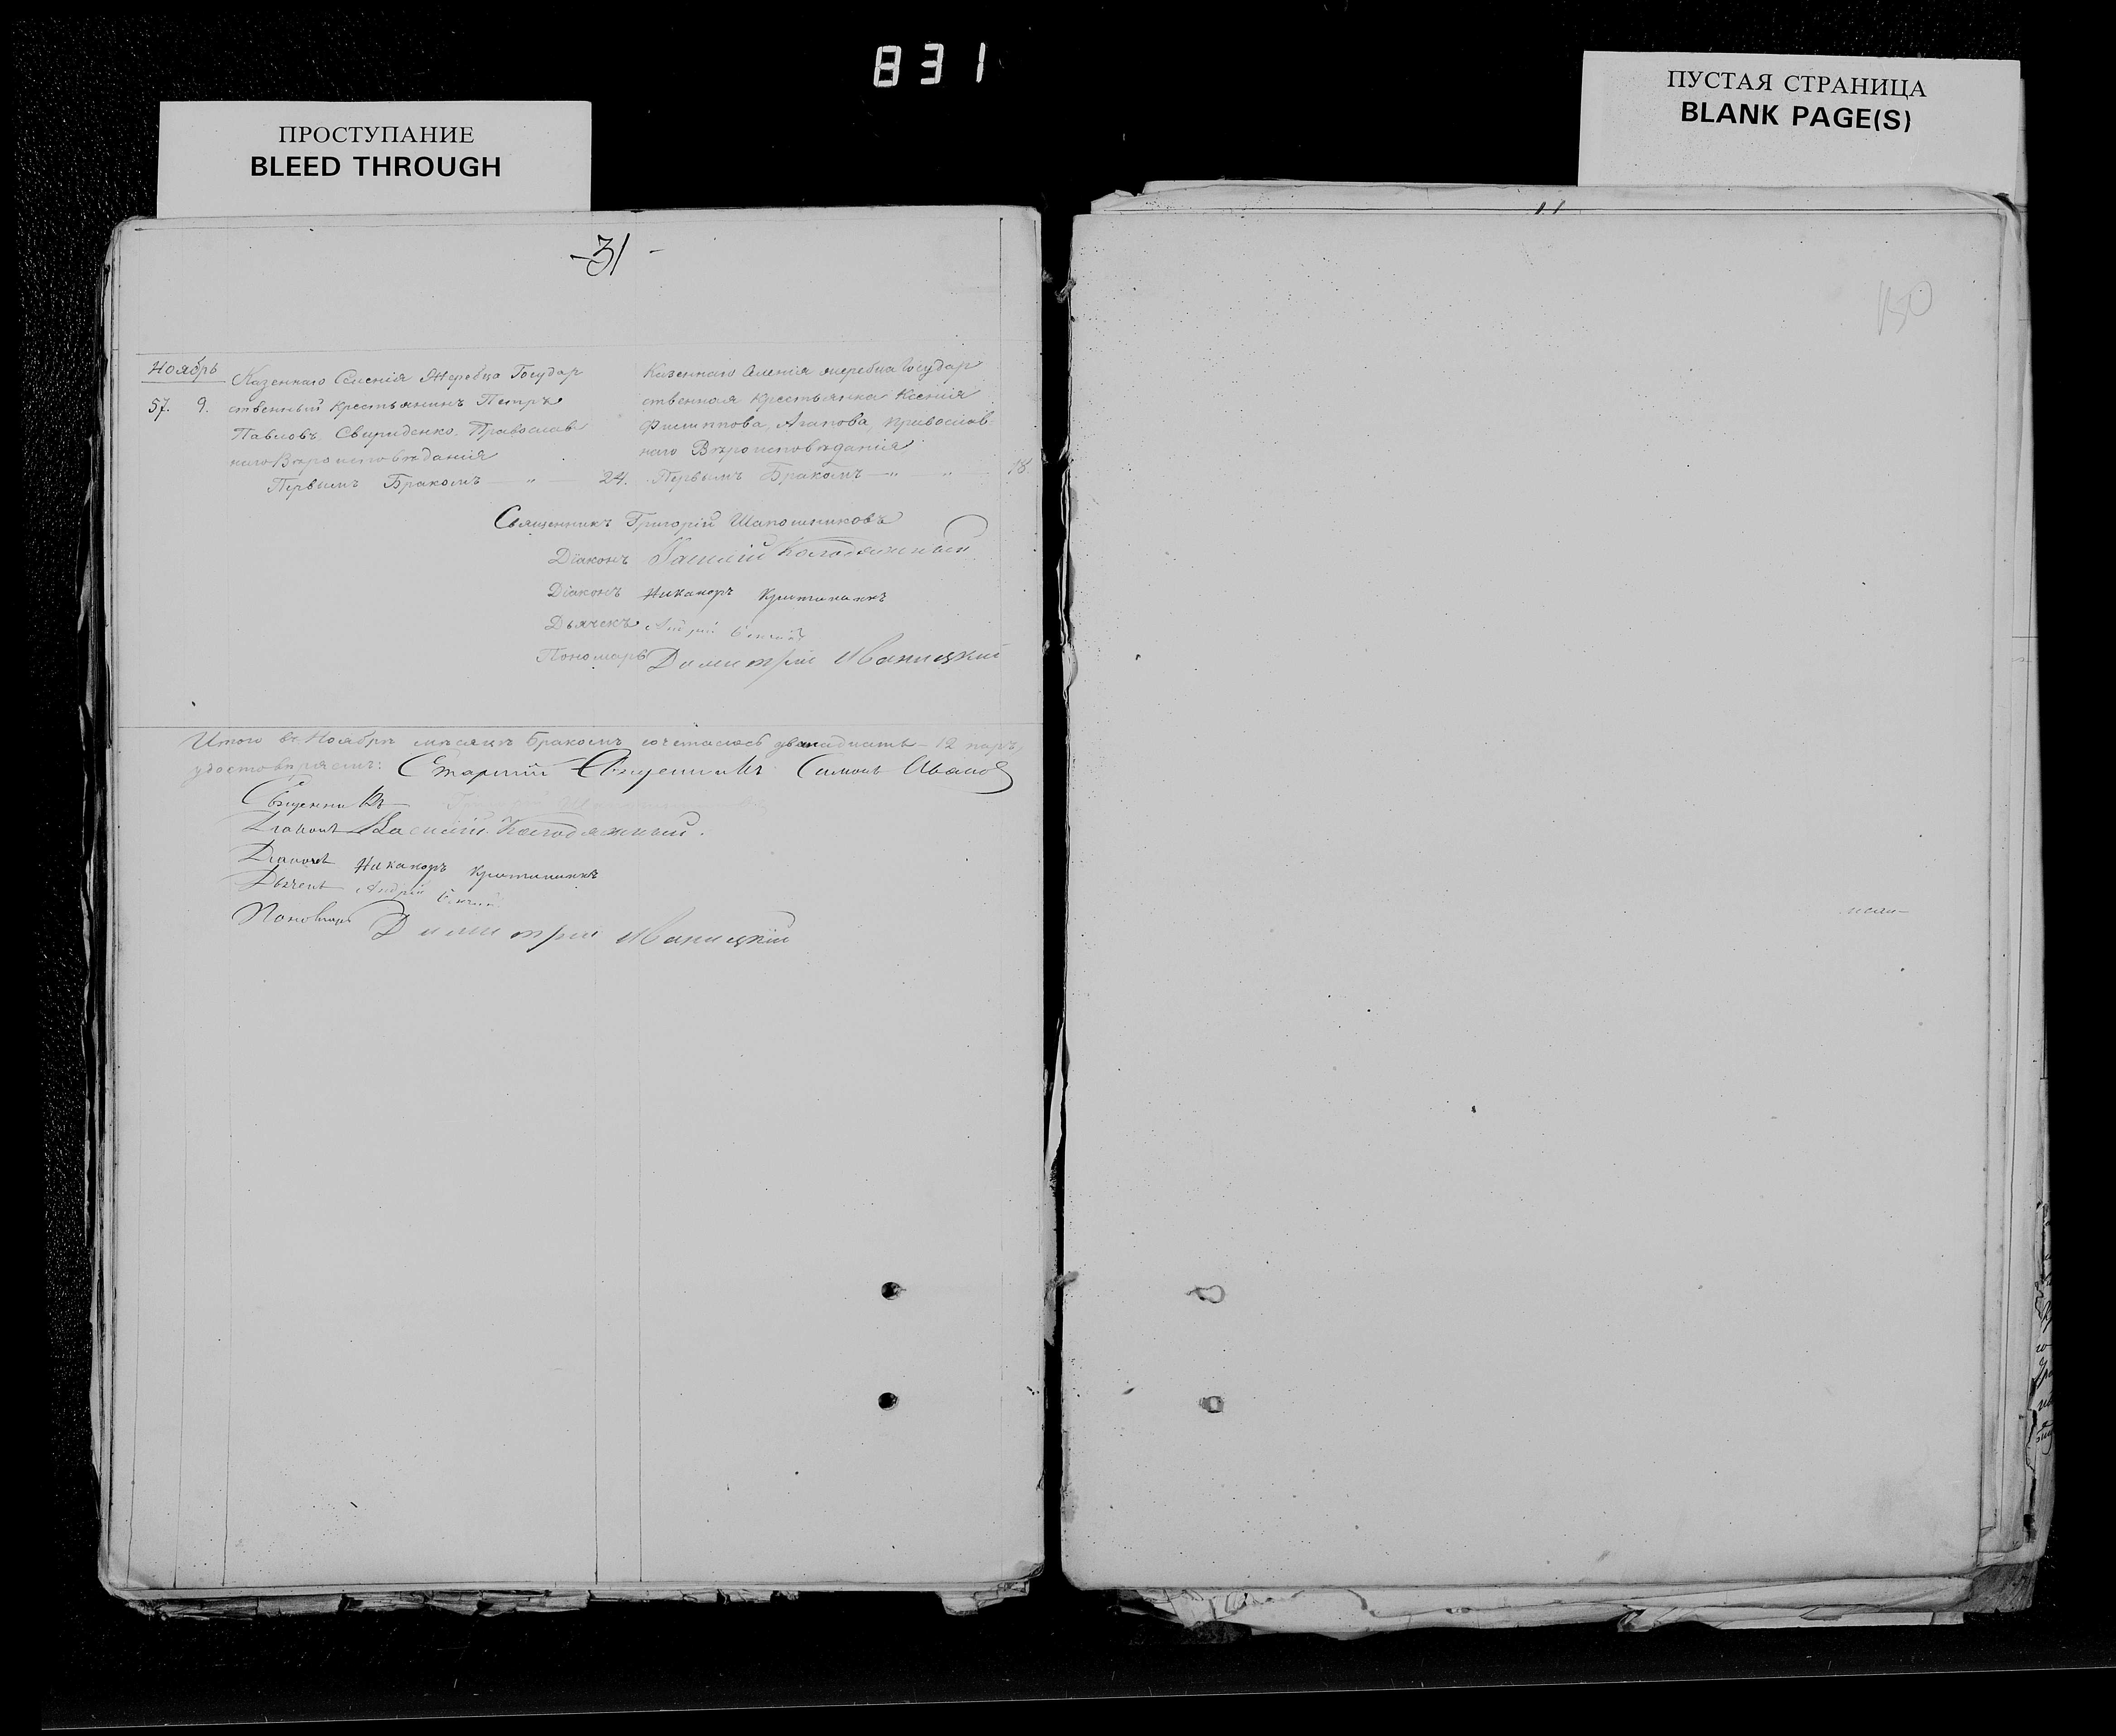 831
ПРОСТУПАНИЕ
BLEED THROUGH
ПУСТАЯ СТРАНИЦА
BLANK PAGE(S)
-31-
Ноябрь
57. 9.
Казеннаго Селенія Жеребца Государ
ственный крестьянинъ Петръ
Павловъ Свириденко. Православ
наго Вѣроисповѣданія
Первымъ Бракомъ — " — 24.
Казеннаго Селенія жеребца Государ
ственная крестьянка Ксенія
Филиппова, Агапова, православ
наго Вѣроисповѣданія
Первымъ Бракомъ — " " — 18.
Священникъ Григорій Шапошниковъ
Діаконъ Василій Колодяжный
Діаконъ Никаноръ
Дьячекъ Андрій
Пономарь Димитрій Иваницкій
Итого въ Ноябрѣ мѣсяцѣ Бракомъ сочеталось двѣнадцать — 12 паръ,
удостовѣряемъ: Старшій Священникъ Симонъ Иванов
Священникъ
Діаконъ Василій Колодяжный.
Діаконъ Никаноръ
Дьячекъ Андрій
Пономарь Димитрій Иваницкій
150